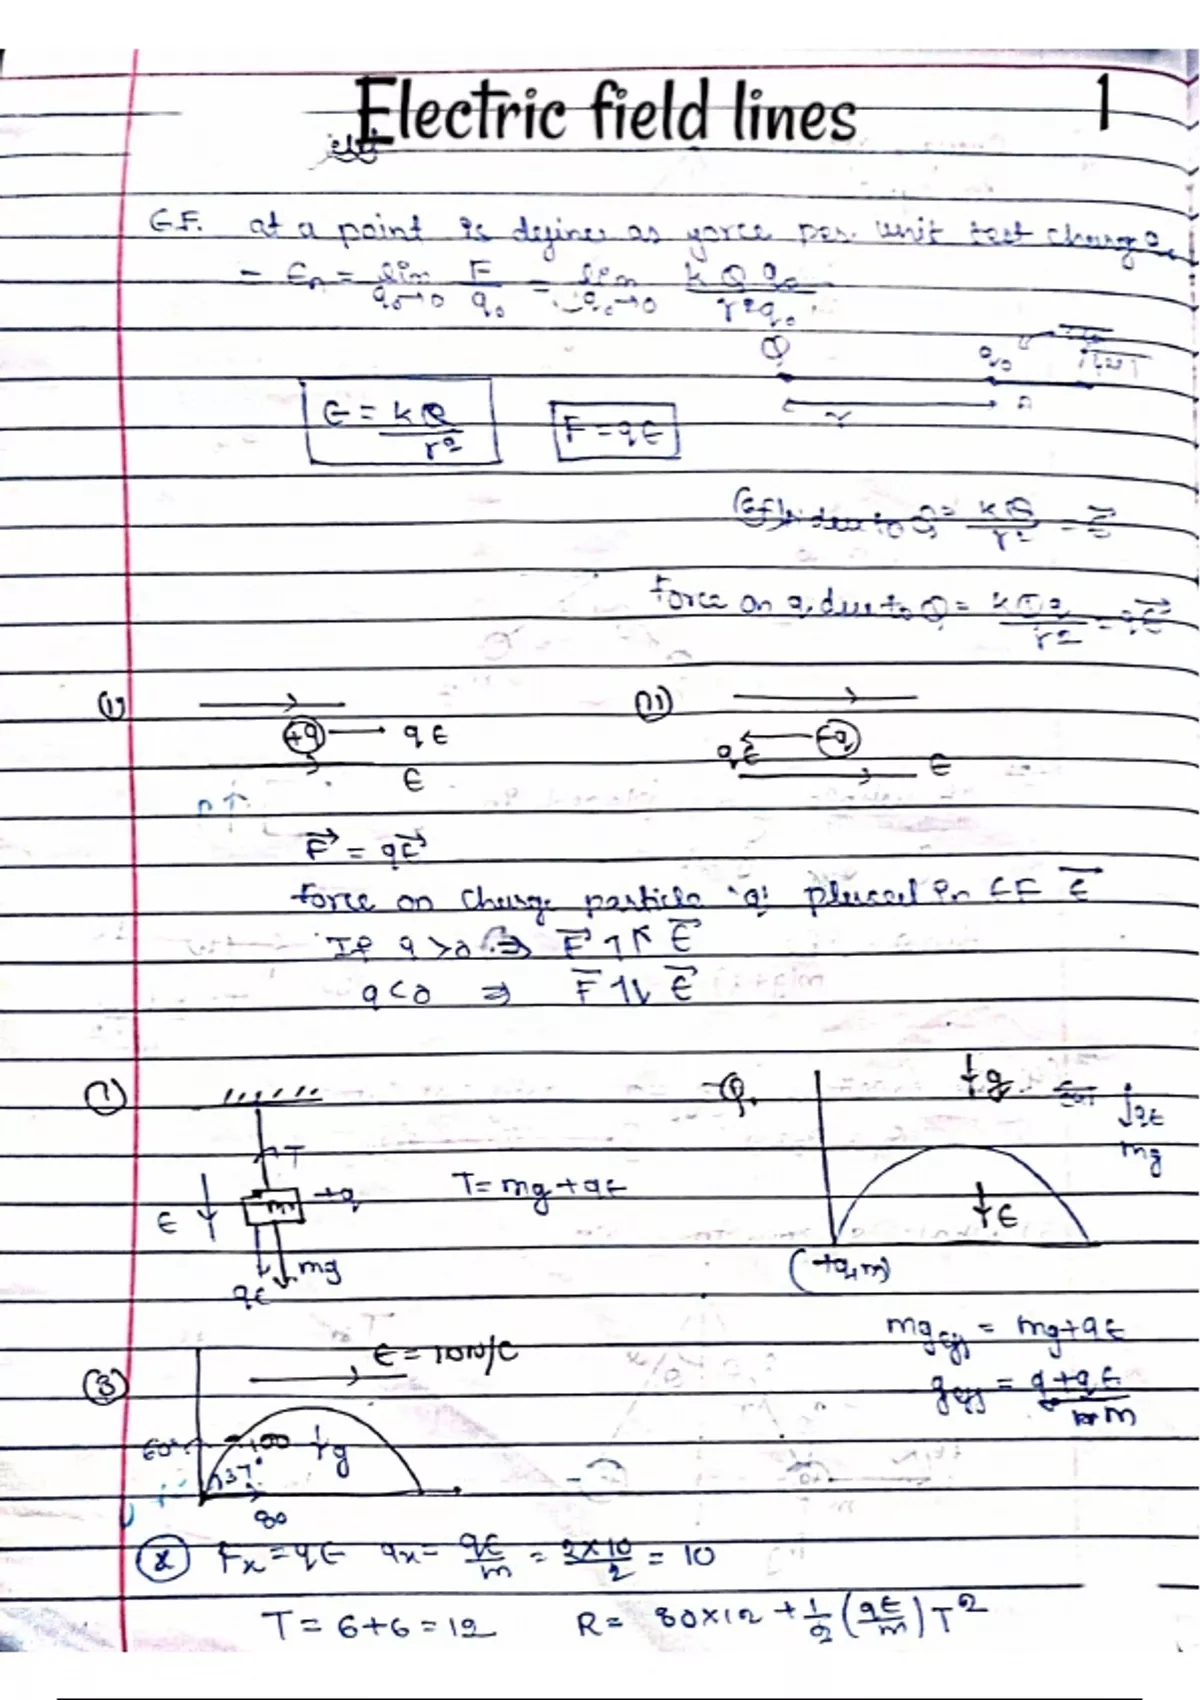 Electric field lines 1
E.F. at a point is defines as force per unit test charge
= En = lim q₀→0 F/q₀ = lim q₀→0 kQq₀/r²q₀
Q q₀
r
E = kQ/r² F = qE
due to Q = kQ/r² = E⃗
Force on q due to Q = kQq/r² = qE⃗
(i) +q qE E
(ii) -q qE E
F⃗ = qE⃗
force on charge particle 'q' placed in EF E⃗
If q>0 ⇒ F⃗ ↑↑ E⃗
q<0 ⇒ F⃗ ↑↓ E⃗
(1) T
E m +q T = mg + qE
qE mg
Q. g qE mg
E
(+q, m)
mg eff = mg + qE
g eff = g + qE/m
(3) E = 10N/C
60 100 g
37°
80
(x) Fx = qE ax = qE/m = 2×10/2 = 10
T = 6+6 = 12 R = 80×12 + 1/2 (qE/m) T²